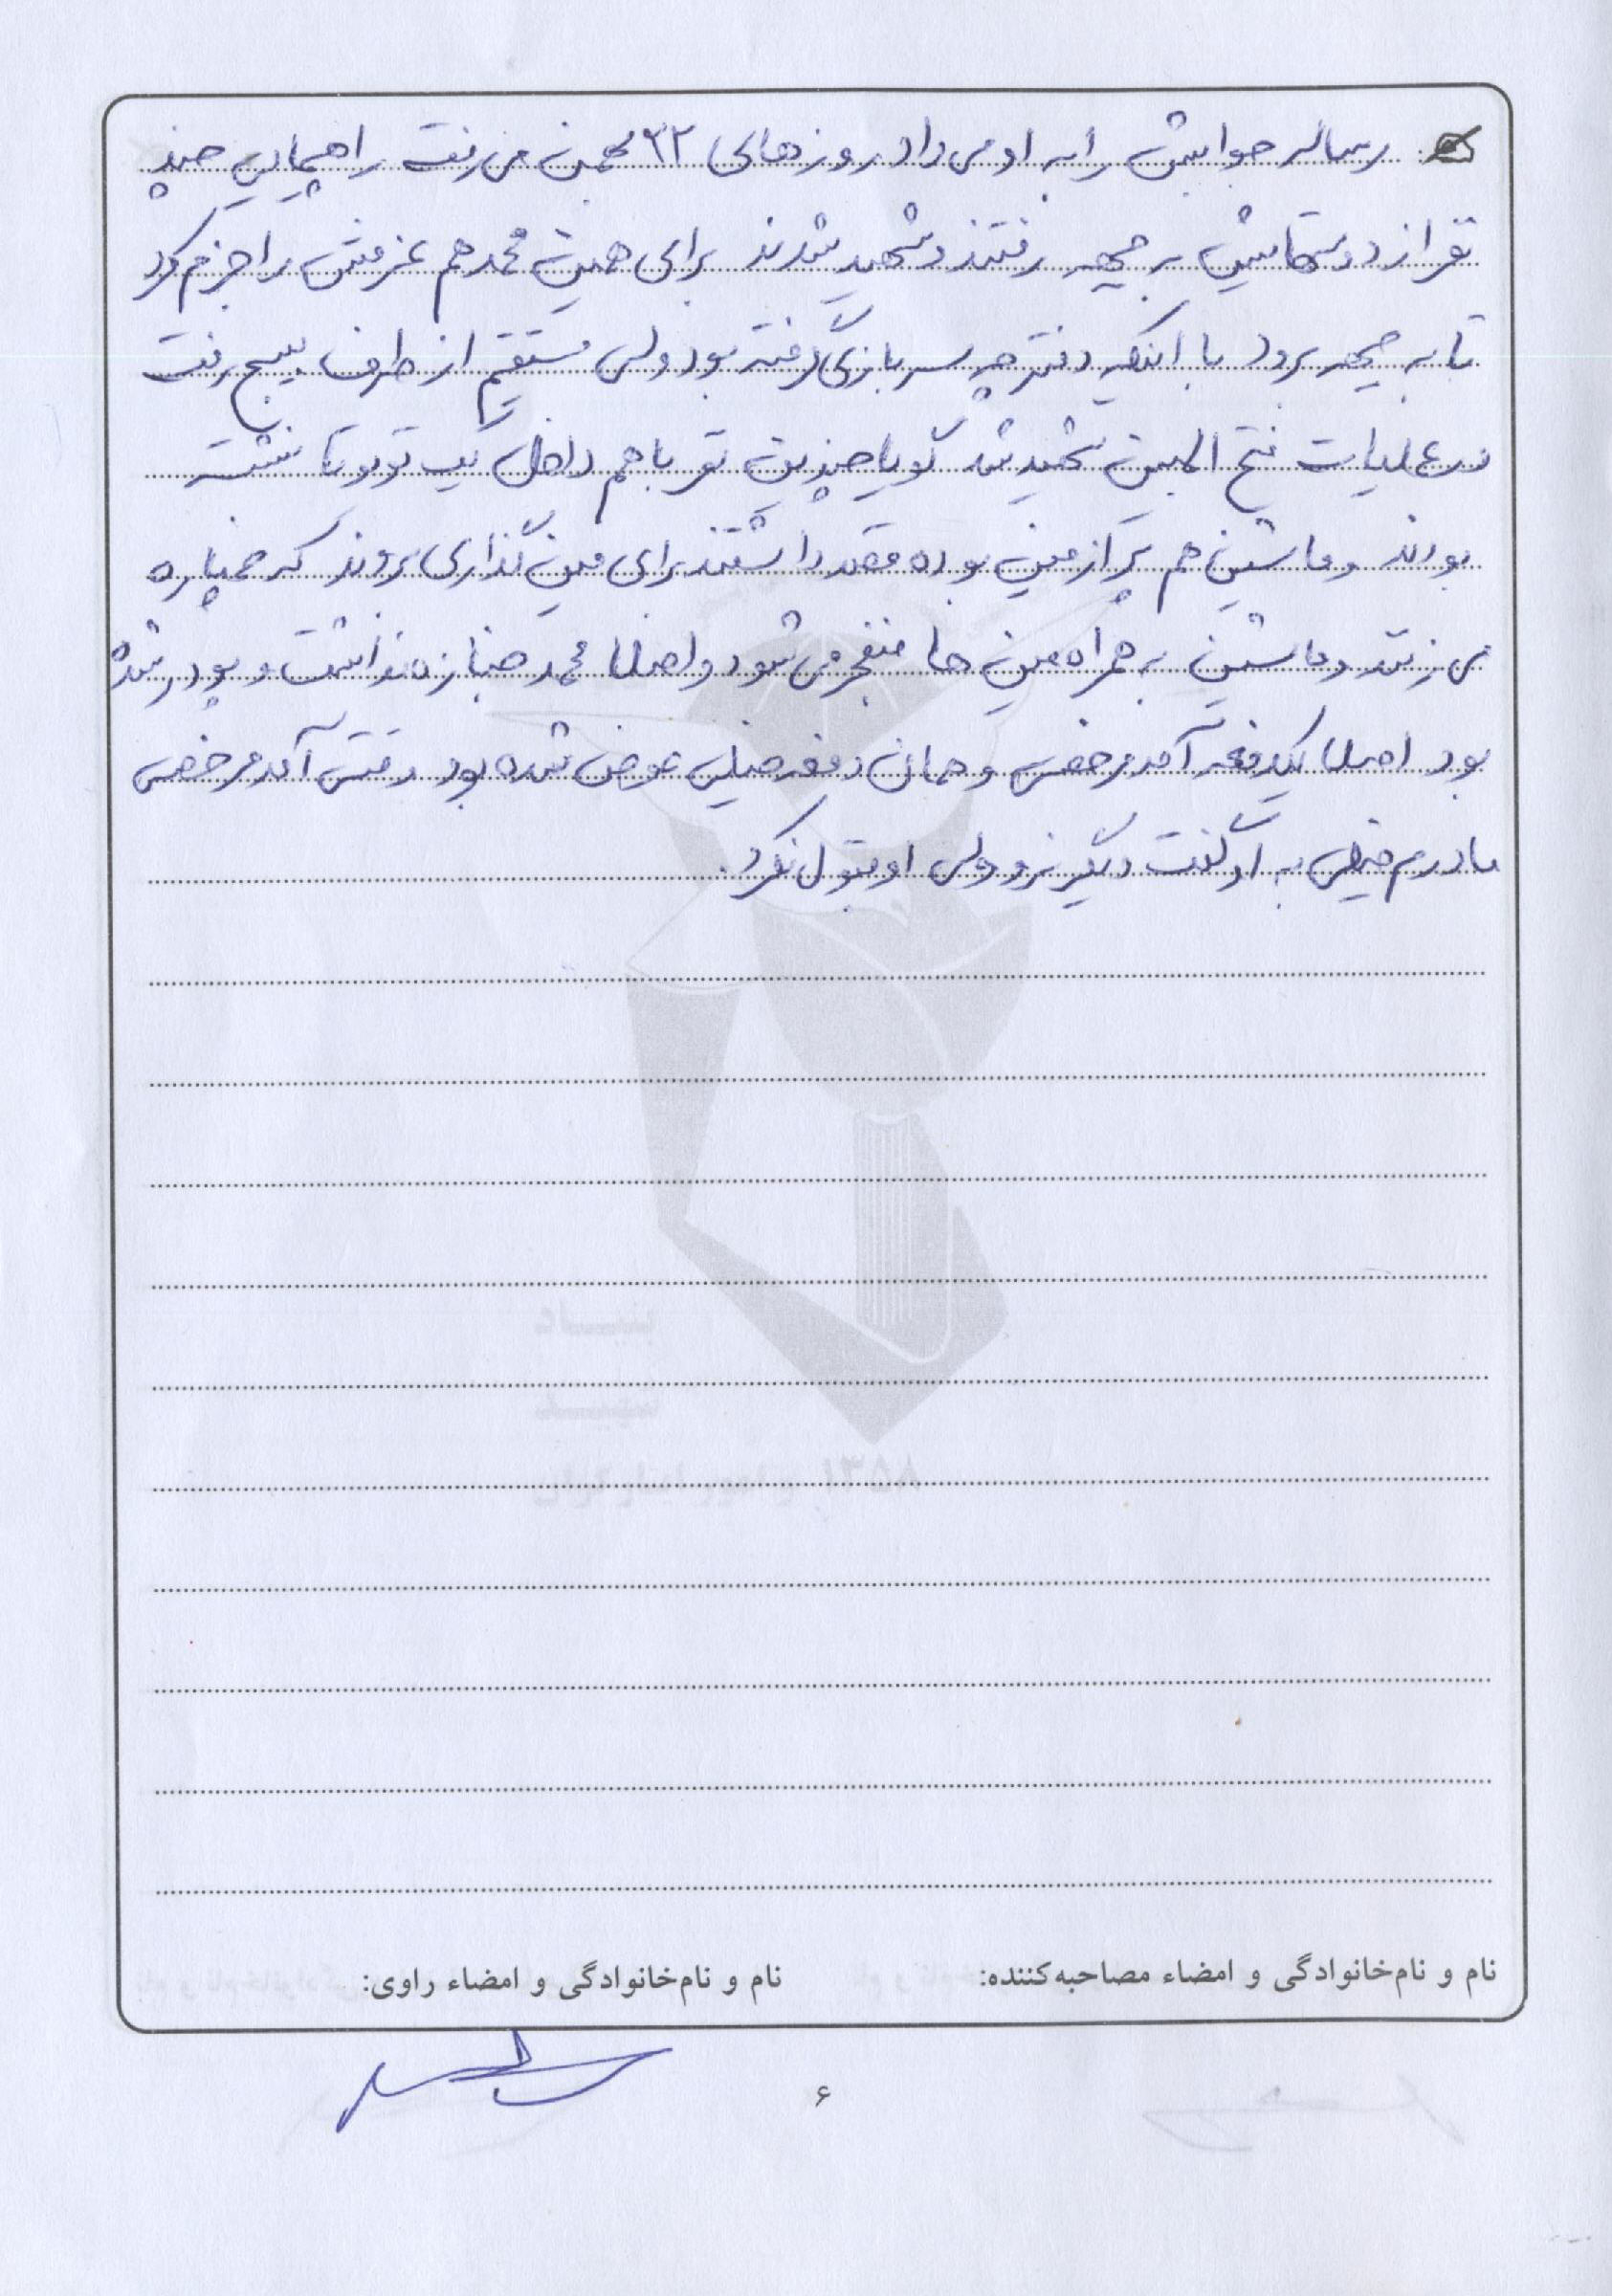 رساله جوابش را به او می داد روزهای ۲۲ بهمن می رفت راهپیمایی چند
نفر از دوستهاشی به جبهه رفتند و شهید شدند برای همین محمد هم عزمش را جزم کرد
تا به جبهه برود با اینکه دفترچه سربازی گرفته بود ولی مستقیم از طرف بسیج رفت
در عملیات فتح المبین شهید شد گویا چندین نفر با هم داخل یک تویوتا نشسته
بودند و ماشین هم پر از مین بوده قصد داشتند برای مین گذاری بروند که خمپاره
می زنند و ماشین به همراه مین ها منفجر می شود و اصلا محمد جنازه نداشت و پودر شده
بود اصلا یکدفعه آمد مرخصی و همان دفعه خیلی عوض شده بود وقتی آمد مرخصی
مادرم خیلی به او گفت دیگر نرو ولی او قبول نکرد.
نام و نام‌خانوادگی و امضاء مصاحبه‌کننده: نام و نام‌خانوادگی و امضاء راوی:
۶